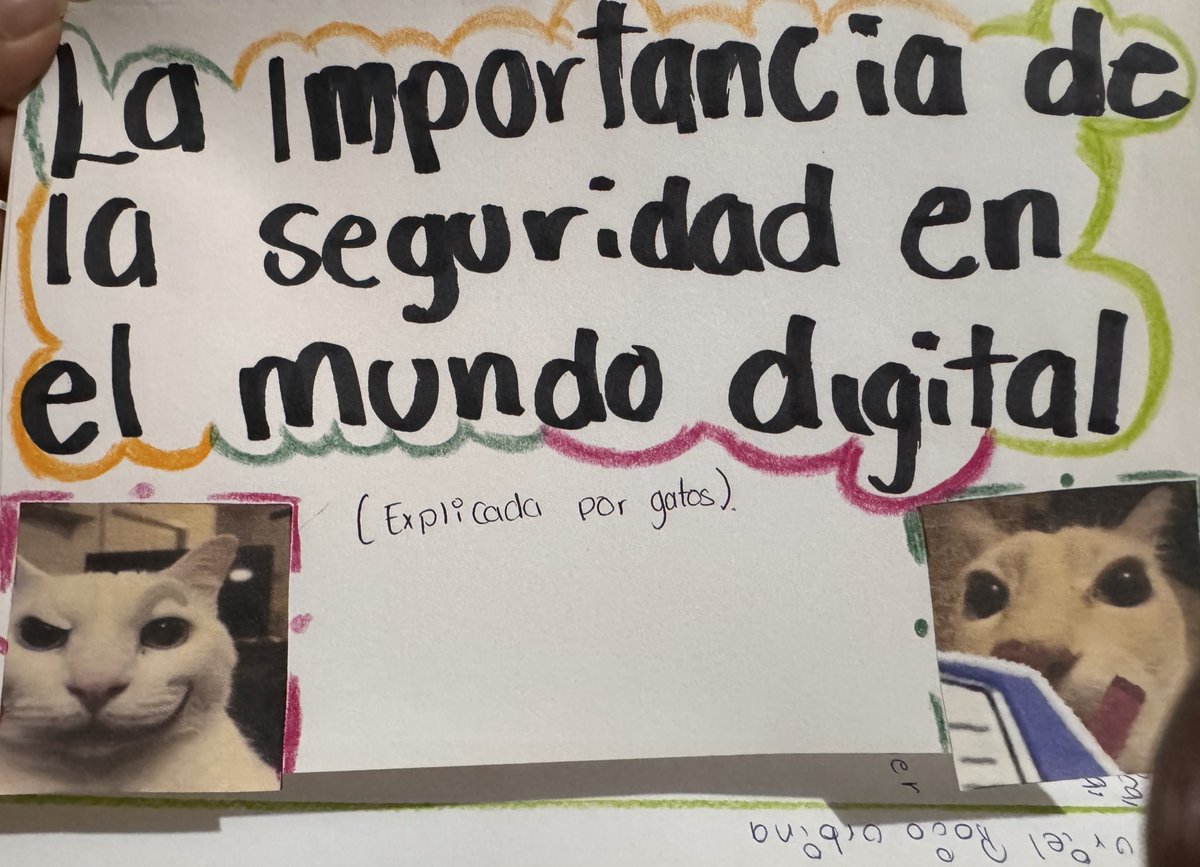 La importancia de
la seguridad en
el mundo digital
(Explicada por gatos).
er
uriel Rocio urbina